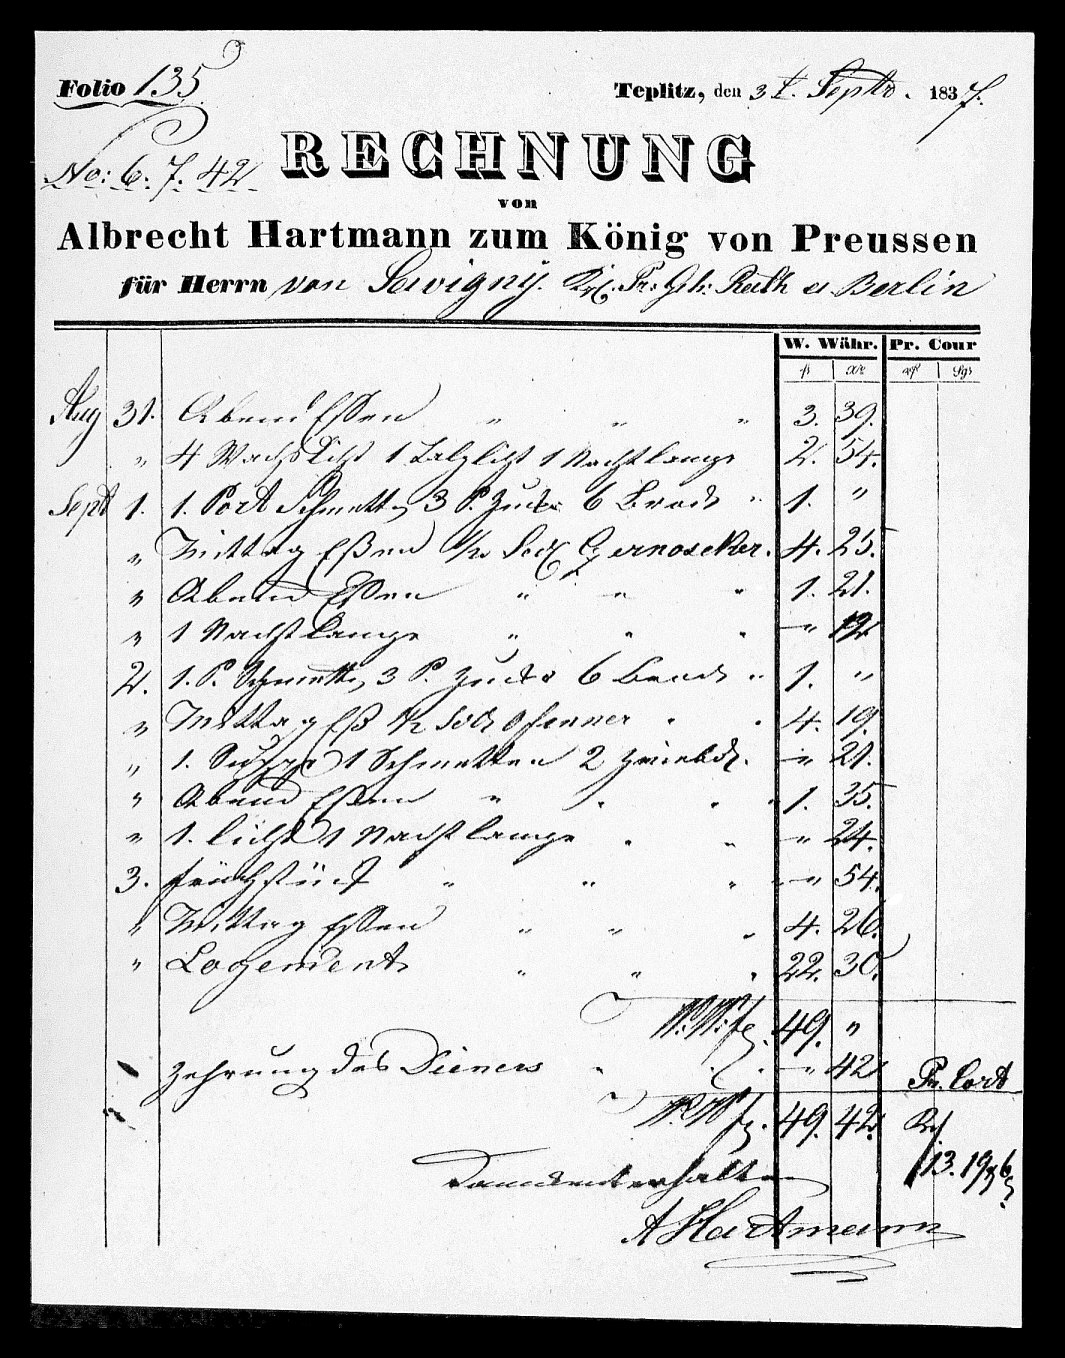 Folio 135
Teplitz, den 3t. Septbr. 1837.
No: 6. 7. 42
RECHNUNG
von
Albrecht Hartmann zum König von Preussen
für Herrn von Savigny. Kgl. Pr: Gh: Rath a Berlin
W. Währ. Pr. Cour
fl xr Sgr
Aug 31. Abend Essen " " " 3. 39.
" 4 Wachslicht 1 Talglicht 1 Nachtlampe 2. 54.
Sept 1. 1. Port Schmetten 3 P. Zucker 6 Brode " 1. "
" Mittag Eßen 1/2 Czernoseker. 4. 25.
" Abend Essen " " " 1. 21.
" 1 Nachtlampe " " " " 12
2. 1. P. Schmetten, 3 P. Zucker 6 Brode " 1. "
" Mittag Eß 1/2 Ofenner " " 4. 19.
" 1. Suppe 1 Schmetten 2 " 21.
" Abend Eßen " " " 1. 35.
" 1. Licht 1 Nachtlampe " " " 24.
3. Frühstück " " " " 54.
" Mittag Essen " " " 4. 26.
" Logement " " " 22. 30.
W. W. fl. 49. "
Zehrung des Dieners " " " 42 Pr. Cort
W. W. fl. 49. 42.
13. 19 6
Danckent erhalten
A Hartmann